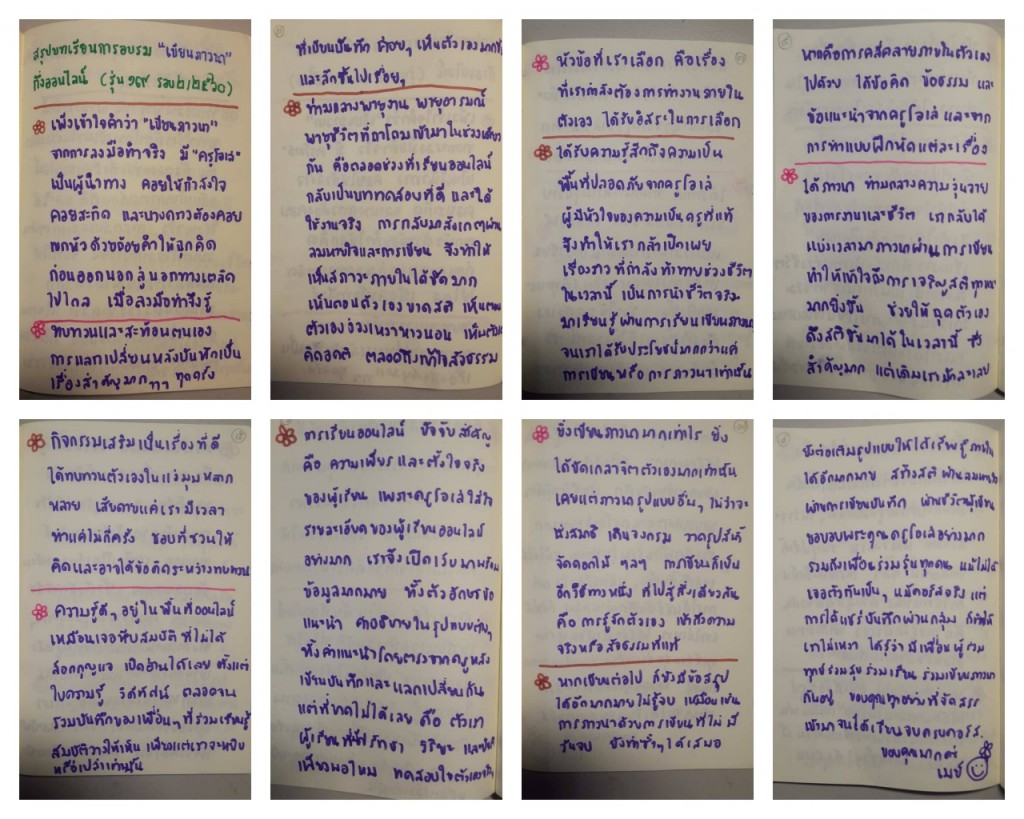 สรุปบทเรียนการอบรม "เขียนภาวนา"
กึ่งออนไลน์ (รุ่น ๑๙ รอบ๒/๒๕๖๐)
เพิ่งเข้าใจคำว่า "เขียนภาวนา"
จากการลงมือทำจริง มี "ครูโอเล่"
เป็นผู้นำทาง คอยให้กำลังใจ
คอยสะกิด และบางคราวต้องคอย
เขกหัวด้วยถ้อยคำให้ฉุกคิด
ก่อนออกนอกลู่นอกทางเตลิด
ไปไกล เมื่อลงมือทำจึงรู้
ทบทวนและสะท้อนตนเอง
การแลกเปลี่ยนหลังบันทึกเป็น
เรื่องสำคัญมาก ๆๆ ทุกครั้ง
ที่เขียนบันทึก ค่อยๆ เห็นตัวเองมากขึ้น
และลึกขึ้นไปเรื่อยๆ
ท่ามกลางพายุงาน พายุอารมณ์
พายุชีวิตที่ถาโถมเข้ามาในช่วงเดียว
กัน คือตลอดช่วงที่เรียนออนไลน์
กลับเป็นบททดสอบที่ดี และได้
ใช้งานจริง การกลับมาสังเกตผ่าน
ลมหายใจและการเขียน จึงทำให้
เห็นสภาวะภายในได้ชัดมาก
เห็นตอนตัวเองขาดสติ เห็นตอน
ตัวเองง่วงเหงาหาวนอน เห็นตัวเอง
คิดอคติ ตลอดถึงเข้าใจสัจธรรม
หัวข้อที่เราเลือก คือเรื่อง
ที่เรากำลังต้องการทำงานภายใน
ตัวเอง ได้รับอิสระในการเลือก
ได้รับความรู้สึกถึงความเป็น
พื้นที่ปลอดภัยจากครูโอเล่
ผู้มีหัวใจของความเป็นครูที่แท้
จึงทำให้เรากล้าเปิดเผย
เรื่องราวที่กำลังท้าทายช่วงชีวิต
ในเวลานี้ เป็นการนำชีวิตจริง
มาเรียนรู้ผ่านการเรียนเขียนภาวนา
จนเราได้รับประโยชน์มากกว่าแค่
การเขียนหรือการภาวนาเท่านั้น
หากคือการคลี่คลายภายในตัวเอง
ไปด้วย ได้ข้อคิด ข้อธรรม และ
ข้อแนะนำจากครูโอเล่ และจาก
การทำแบบฝึกหัดแต่ละเรื่อง
ได้ภาวนา ท่ามกลางความวุ่นวาย
ของการงานและชีวิต เรากลับได้
แบ่งเวลามาภาวนาผ่านการเขียน
ทำให้เข้าใจถึงการเจริญสติทุกขณะ
มากยิ่งขึ้น ช่วยให้ฉุดตัวเอง
ดึงสติขึ้นมาได้ในเวลานี้ ซึ่ง
สำคัญมาก แต่เดิมเรามักละเลย
กิจกรรมเสริมเป็นเรื่องที่ดี
ได้ทบทวนตัวเองในแง่มุมหลาก
หลาย เสียดายแค่เรามีเวลา
ทำแค่ไม่กี่ครั้ง ชอบที่ชวนให้
คิดและอาจได้ข้อคิดระหว่างทบทวน
ความรู้ดีๆ อยู่ในพื้นที่ออนไลน์
เหมือนเจอหีบสมบัติ ที่ไม่ได้
ล็อกกุญแจ เปิดอ่านได้เลย ตั้งแต่
ใบความรู้ วีดิทัศน์ ตลอดจน
รวมบันทึกของเพื่อนๆ ที่ร่วมเรียนรู้
สมบัติวางให้เห็น เพียงแต่เราจะหยิบ
หรือเปล่าเท่านั้น
การเรียนออนไลน์ ปัจจัยสำคัญ
คือ ความเพียร และตั้งใจจริง
ของผู้เรียน เพราะครูโอเล่ใส่ใจ
รายละเอียดของผู้เรียนออนไลน์
อย่างมาก เราจึงเปิดเว็บมาพร้อม
ข้อมูลมากมาย ทั้งตัวอักษร ข้อ
แนะนำ คำอธิบายในรูปแบบต่างๆ
ทั้งคำแนะนำโดยตรงจากครูหลัง
เขียนบันทึกและแลกเปลี่ยนกัน
แต่ที่ขาดไม่ได้เลย คือ ตัวเรา
ผู้เรียนที่มีศรัทธา วิริยะ และ
เพียงพอไหม ทดสอบใจตัวเอง
ยิ่งเขียนภาวนามากเท่าไร ยิ่ง
ได้ขัดเกลาจิตตัวเองมากเท่านั้น
เคยแต่ภาวนารูปแบบอื่นๆ ไม่ว่าจะ
นั่งสมาธิ เดินจงกรม วาดรูปสีน้ำ
จัดดอกไม้ ฯลฯ การเขียนก็เป็น
อีกวิธีทางหนึ่ง ที่ไปสู่สิ่งเดียวกัน
คือ การรู้จักตัวเอง เข้าถึงความ
จริงหรือ สัจธรรมที่แท้
หากเขียนต่อไป ก็ยังมีข้อสรุป
ได้อีกมากมาย ไม่รู้จบ เหมือนเช่น
การภาวนาด้วยการเขียนที่ไม่มี
วันจบ ยังทำซ้ำๆ ได้เสมอ
ยังต่อเติมรูปแบบให้ได้เรียนรู้ภายใน
ได้อีกมากมาย สร้างสติผ่านลมหายใจ
ผ่านการเขียนบันทึก ผ่านชีวิตผู้เขียน
ขอบพระคุณครูโอเล่อย่างมาก
รวมถึงเพื่อนร่วมรุ่นทุกคน แม้ไม่ได้
เจอตัวกันเป็นๆ แม้คอร์สจริง แต่
การได้แชร์บันทึกผ่านกลุ่ม ก็ทำให้
เราไม่เหงา ได้รู้ว่ามีเพื่อนผู้ร่วม
ทุกข์ ร่วมสุข ร่วมเรียน ร่วมเขียนภาวนา
กันอยู่ ขอบคุณทุกอย่างที่จัดสรร
เข้ามาจนได้เรียนจบครบคอร์ส.
ขอบคุณมากค่ะ
เมย์